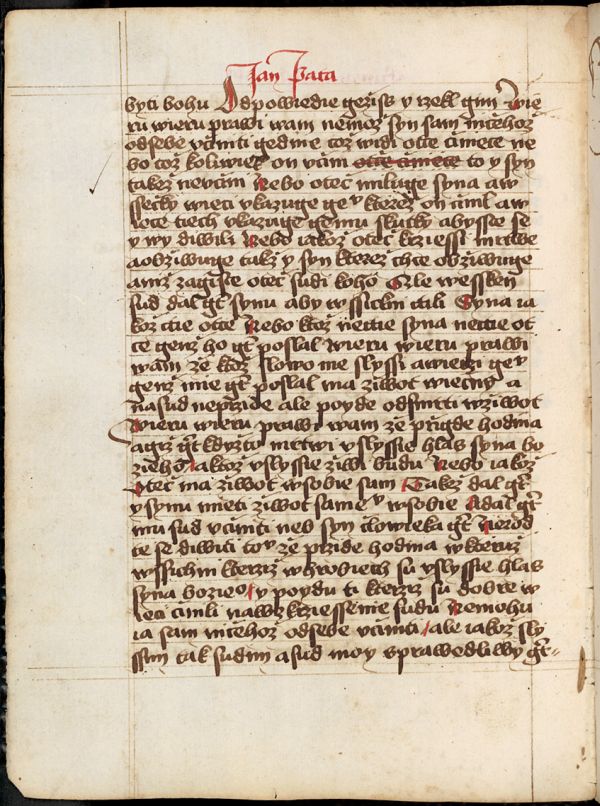 Jan Pata
byti bohu Odpowiedie gežiss y rzekl gim Wie
ru wieru prawi wam nemož syn sam ničehož
odsebe včiniti gedine což widi otce činiece ne
bo což koliwiek on čini otce činiece to y syn
takež nečini Nebo otec miluge syna a w
ssecky wieci vkazuge geᵛ kterež on činil a w
iece tiech vkazuge gemu skutky abysste se
y wy diwili Nebo iakož otec krziessi mrtwe
a obžiwuge takž y syn kterež chce obžiwuge
aniž zagiste otec sudi koho Ele wessken
sud dal gt synu aby wssickni ctili Syna ia
kož ctie otce Nebo ktož nectie syna nectie ot
ce genž ho gt poslal wieru wieru prawi
wam že ktož slowo me slyssi a wierzi geᵛ
genž mie gt poslal ma žiwot wiecny a
na sud neprzide ale poyde odsmrti wžiwot
Wieru wieru prawi wam že přigde hodina
a giž gt kdyžto mrtwi vslyssie hlas syna bo
zieho a ktož vslyssie žiwi budu Nebo iakož
Otec ma žiwot wsobie sam Takež dal gt
y synu mieti žiwot sameᵛ wsobie A dal gt
mu sud včiniti neb syn člowieka gt Nerod
te se diwiti toᵛ že przide hodina wkteruž
wssichni kterziž whrobiech su vslyssie hlas
syna bozieᵒ y poydu ti kterziž su dobre w
ieci činili nawzkrziessenie sudu Nemohu
ia sam ničehož odsebe včiniti ale iakož sly
ssim tak sudim a sud moy sprawedliwy gt